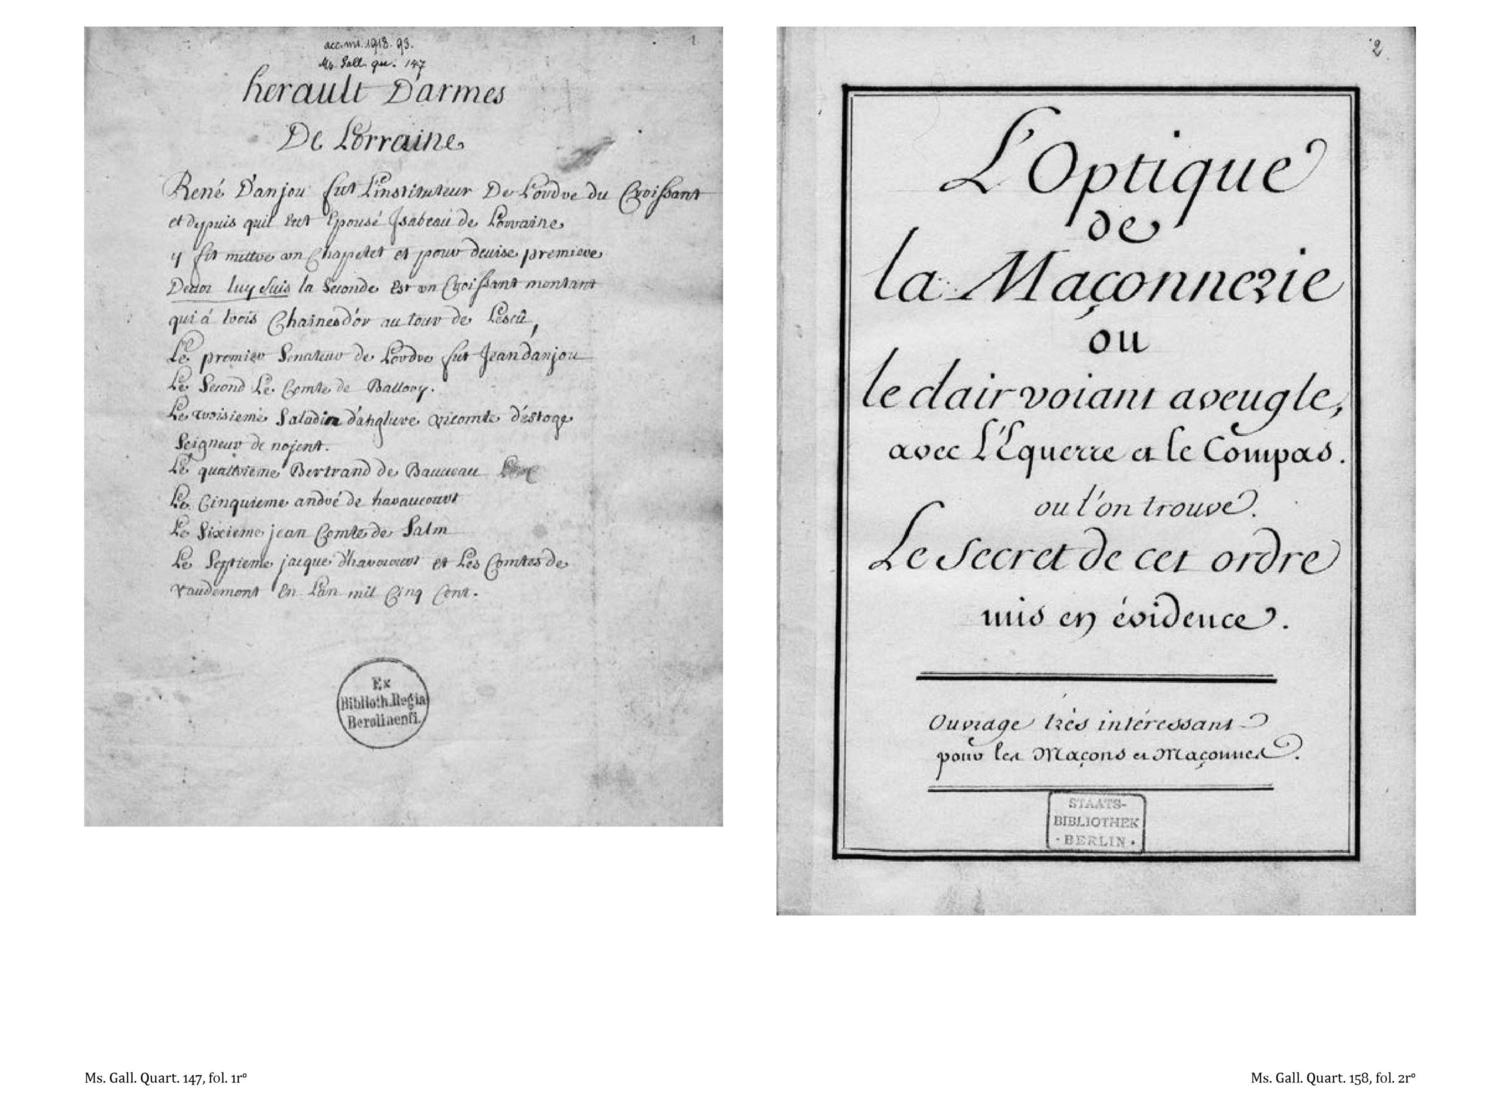 acc. ms. 1918. 93.
Ms. Gall. qu. 147
1
herault D'armes
De Lorraine
René D'anjou fut L'instituteur De L'ordre du Croissant
et depuis quil eut Epousé Isabeau de Lorraine
y fit mettre un Chappelet et pour devise premiere
Devot luy suis la Seconde est un Croissant montant
qui á trois Chaines d'or au tour de Lescu,
Le premier Senateur de Lordre fut Jean danjou
Le Second Le Comte de
Le troisieme Saladin d'anglure vicomte d'estoge
Seigneur de nojent.
Le quattrieme Bertrand de Bauveau
Le Cinquieme andré de haraucourt
Le Sixieme jean Comte de Salm
Le Septieme jacque d'haraucourt et Les Comtes de
vaudemont En Lan mil Cinq Cent.
Ex
Biblioth. Regia
Berolinensi.
Ms. Gall. Quart. 147, fol. 1rº
2
L'Optique
de
la Maçonnerie
ou
le clair voiant aveugle,
avec L'Equerre et le Compas.
ou l'on trouve.
Le Secret de cet ordre
mis en évidence.
Ouvrage très intéressant
pour les Maçons et Maçonnes.
STAATS-
BIBLIOTHEK
· BERLIN ·
Ms. Gall. Quart. 158, fol. 2rº